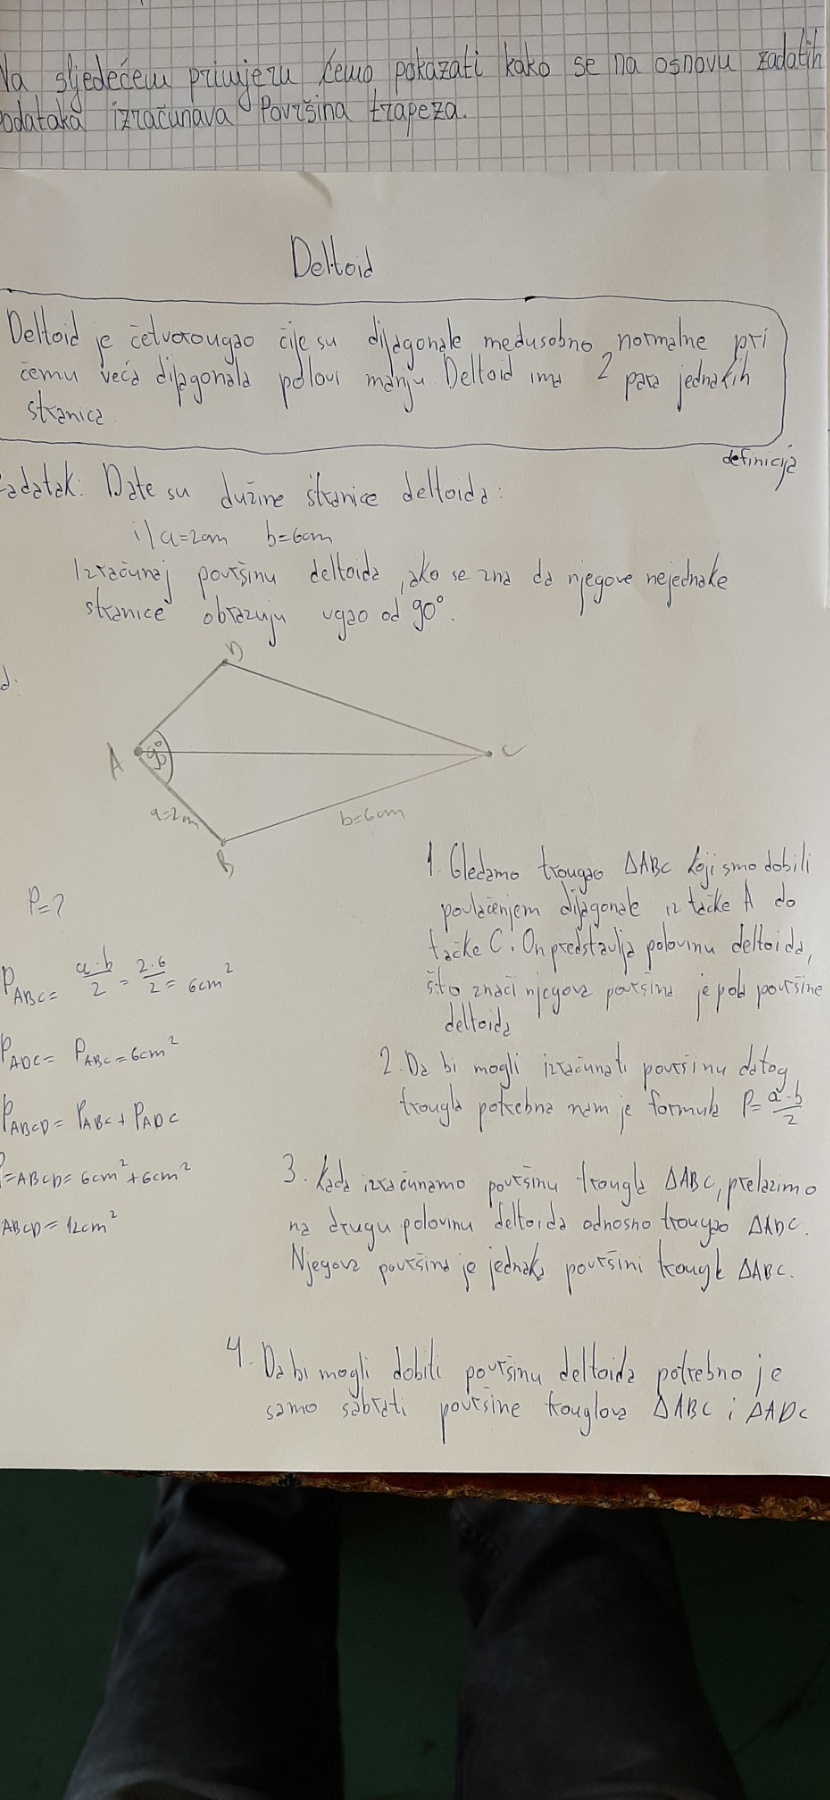 Na sljedećem primjeru ćemo pokazati kako se na osnovu zadatih
podataka izračunava Površina trapeza.
Deltoid
Deltoid je četverougao čije su dijagonale međusobno normalne pri
čemu veća dijagonala polovi manju. Deltoid ima 2 para jednakih
stranica.
definicija
Zadatak: Date su dužine stranice deltoida:
i) a=2cm b=6cm
Izračunaj površinu deltoida, ako se zna da njegove nejednake
stranice obrazuju ugao od 90°.
D
A 90° C
a=2cm b=6cm
B
P=?
P ABC = a·b/2 = 2·6/2 = 6cm²
P ADC = P ABC = 6cm²
P ABCD = P ABC + P ADC
P = ABCD = 6cm² + 6cm²
ABCD = 12cm²
1. Gledamo trougao ΔABC koji smo dobili
povlačenjem dijagonale iz tačke A do
tačke C. On predstavlja polovinu deltoida,
što znači njegova površina je pola površine
deltoida
2. Da bi mogli izračunati površinu datog
trougla potrebna nam je formula P=a·b/2
3. Kada izračunamo površinu trougla ΔABC, prelazimo
na drugu polovinu deltoida odnosno trougao ΔADC.
Njegova površina je jednaka površini trougla ΔABC.
4. Da bi mogli dobiti površinu deltoida potrebno je
samo sabrati površine trouglova ΔABC i ΔADC